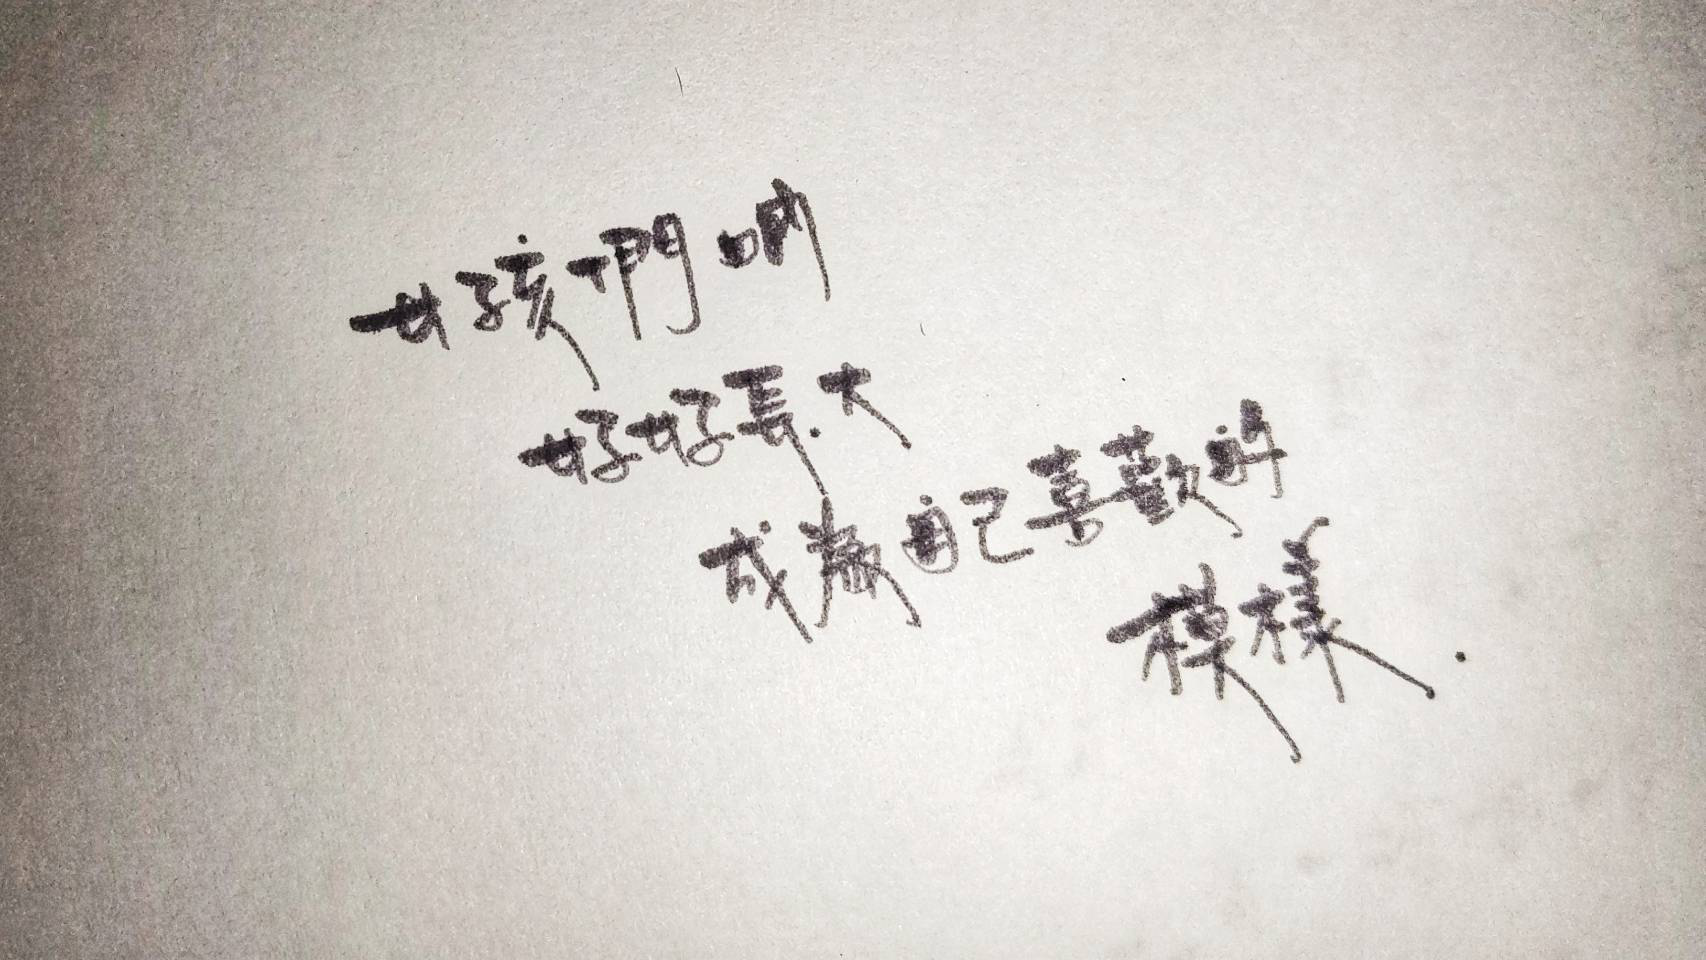 女孩們啊
好好長大
成為自己喜歡的
模樣.